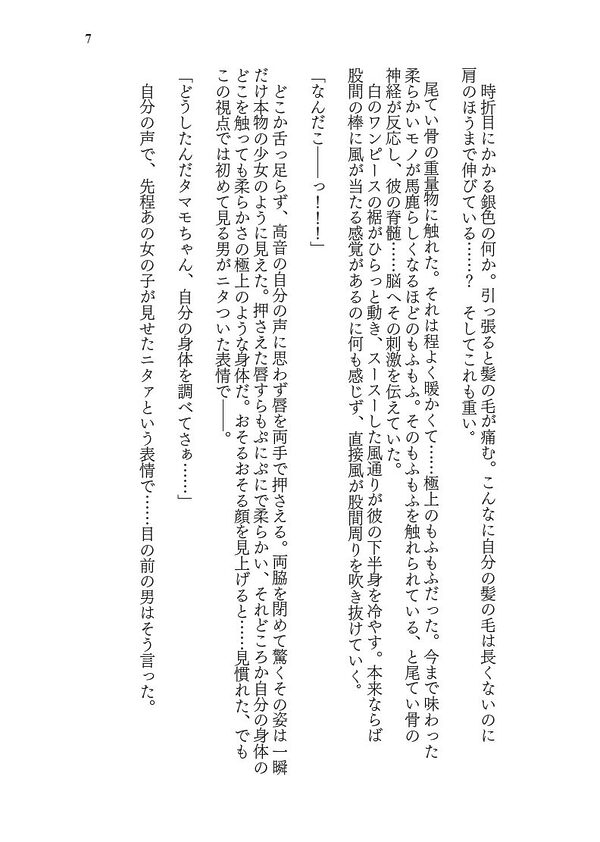 7
時折目にかかる銀色の何か。引っ張ると髪の毛が痛む。こんなに自分の髪の毛は長くないのに
肩のほうまで伸びている……？　そしてこれも重い。
尾てい骨の重量物に触れた。それは程よく暖かくて……極上のもふもふだった。今まで味わった
柔らかいモノが馬鹿らしくなるほどのもふもふ。そのもふもふを触れられている、と尾てい骨の
神経が反応し、彼の脊髄……脳へその刺激を伝えていた。
白のワンピースの裾がひらっと動き、スースーした風通りが彼の下半身を冷やす。本来ならば
股間の棒に風が当たる感覚があるのに何も感じず、直接風が股間周りを吹き抜けていく。
「なんだこ――っ！！！」
どこか舌っ足らず、高音の自分の声に思わず唇を両手で押さえる。両脇を閉めて驚くその姿は一瞬
だけ本物の少女のように見えた。押さえた唇すらもぷにぷにで柔らかい、それどころか自分の身体の
どこを触っても柔らかさの極上のような身体だ。おそるおそる顔を見上げると……見慣れた、でも
この視点では初めて見る男がニタついた表情で――。
「どうしたんだタマモちゃん、自分の身体を調べてさぁ……」
自分の声で、先程あの女の子が見せたニタァという表情で……目の前の男はそう言った。